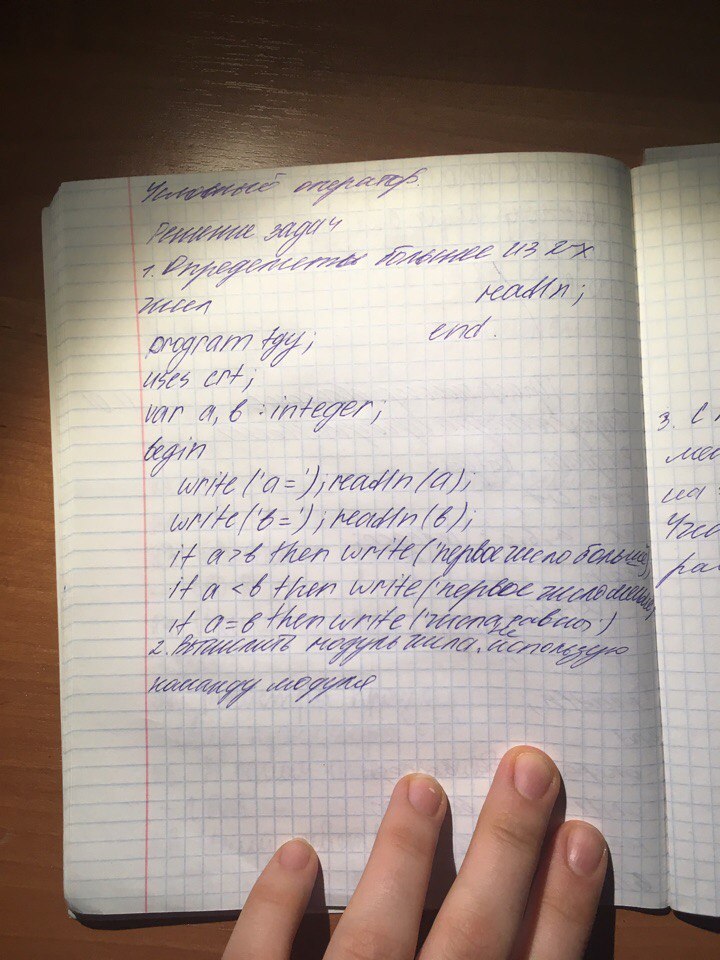 Условный оператор.
Решение задач
1. Определить большее из 2-х
чисел
program tgy;
uses crt;
var a, b : integer;
begin
write('a='); readln(a);
write('b='); readln(b);
if a>b then write('первое число больше)
if a<b then write('первое число меньше,
if a=b then write('числа равны')
readln;
end.
2. Вычислить модуль числа, не используя
команду модуля
3. С
на